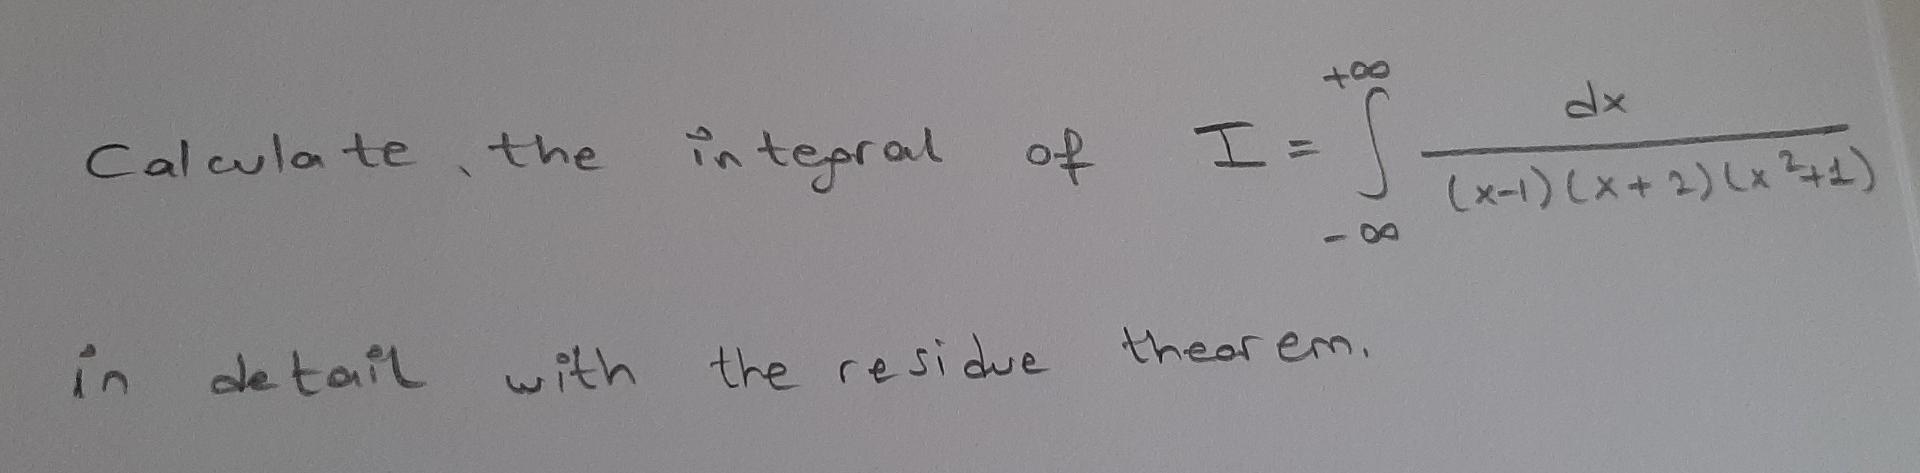 Calculate, the integral of I = ∫_{-∞}^{+∞} dx / ((x-1)(x+2)(x²+1))
in detail with the residue theorem.